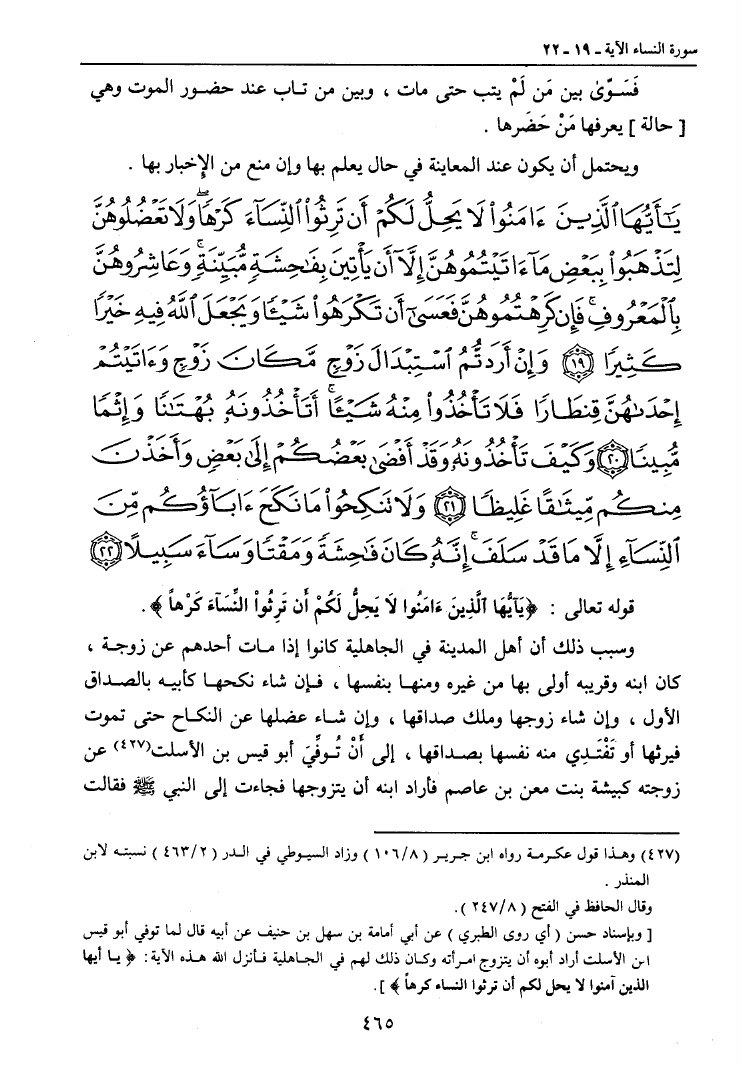 سورة النساء الآية ـ ١٩ ـ ٢٢
فَسَـوّىٰ بين مَن لَمْ يتب حتى مات ، وبين من تـاب عند حضـور الموت وهي
[ حالة ] يعرفها مَنْ حَضَرها .
ويحتمل أن يكون عند المعاينة في حال يعلم بها وإن منع من الإخبار بها .
يَـٰٓأَيُّهَا ٱلَّذِينَ ءَامَنُوا۟ لَا يَحِلُّ لَكُمْ أَن تَرِثُوا۟ ٱلنِّسَآءَ كَرْهًا ۖ وَلَا تَعْضُلُوهُنَّ
لِتَذْهَبُوا۟ بِبَعْضِ مَآ ءَاتَيْتُمُوهُنَّ إِلَّآ أَن يَأْتِينَ بِفَـٰحِشَةٍ مُّبَيِّنَةٍ ۚ وَعَاشِرُوهُنَّ
بِٱلْمَعْرُوفِ ۚ فَإِن كَرِهْتُمُوهُنَّ فَعَسَىٰٓ أَن تَكْرَهُوا۟ شَيْـًٔا وَيَجْعَلَ ٱللَّهُ فِيهِ خَيْرًا
كَثِيرًا ١٩ وَإِنْ أَرَدتُّمُ ٱسْتِبْدَالَ زَوْجٍ مَّكَانَ زَوْجٍ وَءَاتَيْتُمْ
إِحْدَىٰهُنَّ قِنطَارًا فَلَا تَأْخُذُوا۟ مِنْهُ شَيْـًٔا ۚ أَتَأْخُذُونَهُۥ بُهْتَـٰنًا وَإِثْمًا
مُّبِينًا ٢٠ وَكَيْفَ تَأْخُذُونَهُۥ وَقَدْ أَفْضَىٰ بَعْضُكُمْ إِلَىٰ بَعْضٍ وَأَخَذْنَ
مِنكُم مِّيثَـٰقًا غَلِيظًا ٢١ وَلَا تَنكِحُوا۟ مَا نَكَحَ ءَابَآؤُكُم مِّنَ
ٱلنِّسَآءِ إِلَّا مَا قَدْ سَلَفَ ۚ إِنَّهُۥ كَانَ فَـٰحِشَةً وَمَقْتًا وَسَآءَ سَبِيلًا ٢٢
قوله تعالى : ﴿يَآيُّهَا ٱلَّذِينَ ءَامَنُوا لَا يَحِلُّ لَكُمْ أَن تَرِثُواْ النِّسَآءَ كَرْهاً ﴾.
وسبب ذلك أن أهل المدينة في الجاهلية كانوا إذا مـات أحدهم عن زوجـة ،
كان ابنه وقريبه أولى بها من غيره ومنهـا بنفسها ، فـإن شاء نكحهـا كأبيـه بالصـداق
الأول ، وإن شاء زوجها وملك صداقها ، وإن شـاء عضلها عن النكـاح حتى تموت
فيرثها أو تَفْتَـدِي منه نفسها بصـداقها ، إلى أَنْ تُـوفِّيَ أبو قيس بن الأسلت(٤٢٧) عن
زوجته كبيشة بنت معن بن عاصم فأراد ابنه أن يتزوجها فجاءت إلى النبي ﷺ فقالت
(٤٢٧) وهـذا قول عكرمـة رواه ابن جريـر ( ٨/١٠٦ ) وزاد السيوطي في الـدر ( ٢/٤٦٣ ) نسبتـه لابن
المنذر .
وقال الحافظ في الفتح ( ٨/٢٤٧ ).
[ وبإسناد حسن ( أي روى الطبري ) عن أبي أمامة بن سهل بن حنيف عن أبيه قال لما توفي أبو قيس
ابن الأسلت أراد أبوه أن يتزوج امـرأته وكـان ذلك لهم في الجـاهلية فـأنزل الله هـذه الآية : ﴿ يـا أيها
الذين آمنوا لا يحل لكم أن ترثوا النساء كرهاً ﴾ ].
٤٦٥